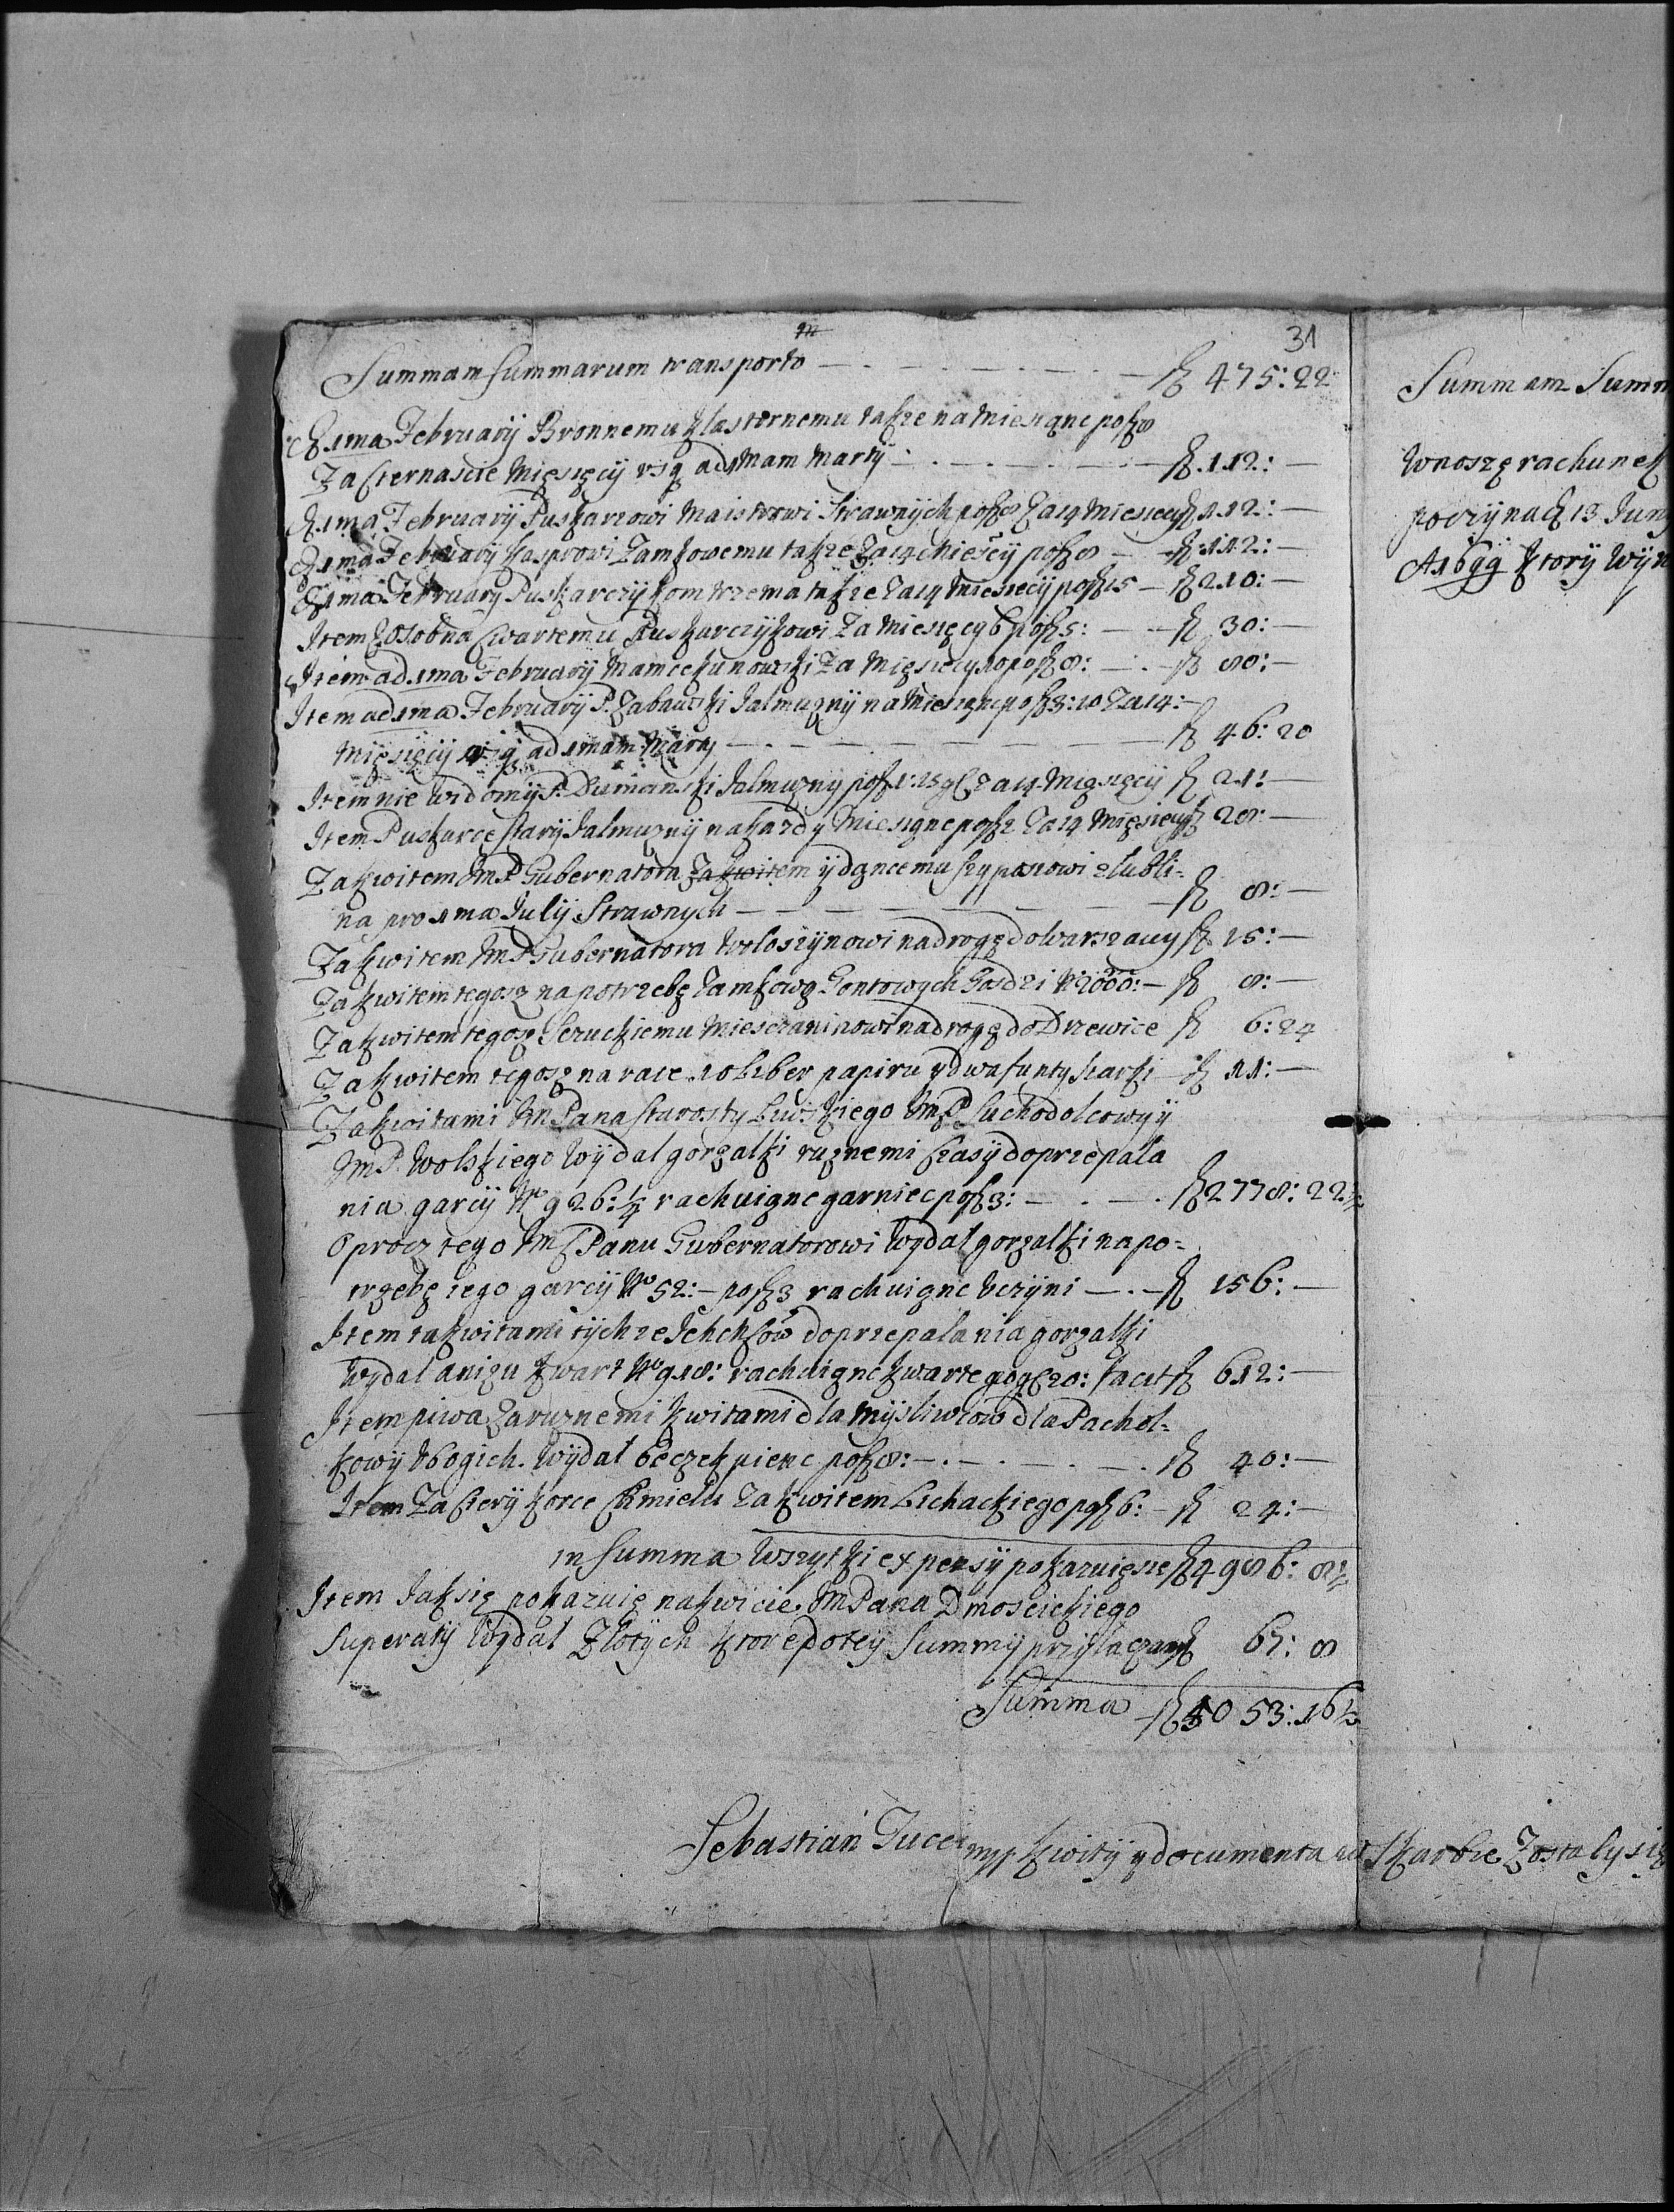 31
Summam summarum transporto — fl 475:22
Ex 1ma February Bronnemu klasternemu takze na Miesiąnc po fl 8
Za Cternascie Mięsięcy usq ad 1mam Marty — fl 112:—
Ex 1ma February Puskarzowi Maistrowi Strawnych po fl 8 Za 14 Miesiecy fl 112:—
Ex 1ma February Kasprowi Zamkowemu takze Za 14 Miesiecy po fl 8 — fl 112:—
Ex 1ma February Puskarczykom trzema takze Za 14 Miesiecy po fl 15 — fl 210:—
Item Zosobna Cwartemu Puskarczykowi Za Miesięcy 6 po fl 5: — fl 30:—
Item ad 1ma February Mamce Kunowski Za Mięsiecy 10 po fl 8: — fl 80:—
Item ad 1ma February P. Zabawski Jalmuzny na Miesiąnc po fl 3:10 Za 14:—
Mięsięcy usq ad 1mam Marty — fl 46:20
Item nie widomy P. Dumanski Jalmuzny po fl 1:15 gl Za 14 Mięsięcy fl 21:—
Item Puskarce stary Jalmuzny na kazdy Miesiąnc po fl 2 Za 14 Mięsiecy fl 28:—
Za kwitem Jm P Gubernatora Za kwitem ydąncemu szyposzowi z lubli-
na pro 1ma July Strawnych — fl 8:—
Za kwitem Jm P Gubernatora Wloszynowi na drogę do Warszawy fl 15:—
Za kwitem tegosz na potrzebę Zamkowę Gontowych Gozdzi No 2000:— fl 8:—
Za kwitem tegosz Miesczaninowi na drogę do Drzewice fl 6:24
Za kwitem tegosz na race 10 liber papiru y dwa funty siarki — fl 11:—
Za kwitami Jm Pana Starosty Jm P Suchodolcowy y
Jm P. Wolskiego Wydal gorzalki ruznemi Czasy do przepala
nia garcy No 926:¼ rachuiąnc garniec po fl 3: — fl 2778:22½
Oprocz tego Jm Panu Gubernatorowi Wydal gorzalki na po-
trzebę iego garcy No 52:— po fl 3 rachuiąnc uczyni — fl 156:—
Item za kwitami tychze do przepalania gorzalki
Wydal anizu kwart No 918: rachuiąnc kwarte po gl 20: facit fl 612:—
Item piwa za ruznemi kwitami dla Mysliwców dla Pachol-
kow y Ubogich. Wydal beczek pienc po fl 8:— fl 40:—
Item Za Ctery korce Chmielu Za kwitem Lichackiego po fl 6:— fl 24:—
in summa Wszytki expensy pokazuię sie fl 4986:8½
Item Jak się pokazuię na kwicie Jm Pana Dmoscickiego
Superaty Wydal Zlotych ktore do tey Summy przylaczam fl 67:8
Summa fl 5053:16½
Sebastian kwity y documenta w Skarbie Zostaly się
Summam Summ
Wnoszę rachunek
poczyna 13 Juny
A 1699 ktory Wyn